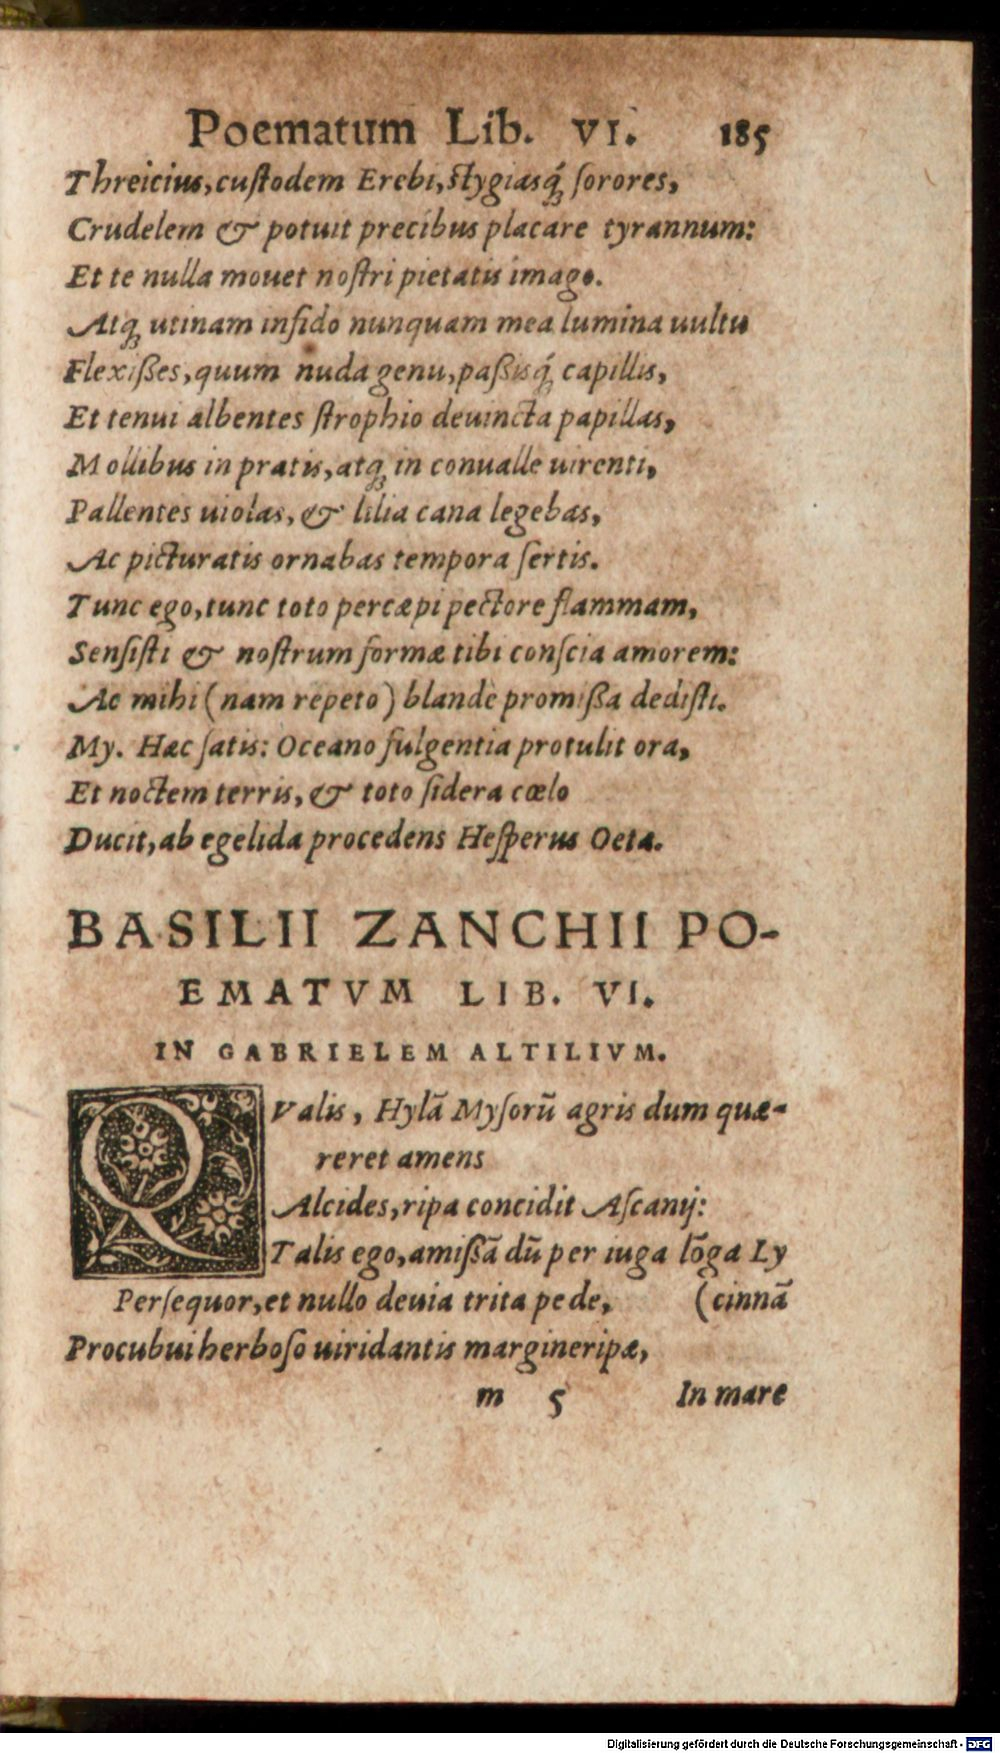 Poematum Lib. VI. 185
Threicius, custodem Erebi, stygiasq́; sorores,
Crudelem & potuit precibus placare tyrannum:
Et te nulla mouet nostri pietatis imago.
Atq; utinam infido nunquam mea lumina uultu
Flexißes, quum nuda genu, paßisq́; capillis,
Et tenui albentes strophio deuincta papillas,
Mollibus in pratis, atq; in conualle uirenti,
Pallentes uiolas, & lilia cana legebas,
Ac picturatis ornabas tempora sertis.
Tunc ego, tunc toto percæpi pectore flammam,
Sensisti & nostrum formæ tibi conscia amorem:
Ac mihi (nam repeto) blandè promißa dedisti.
My. Hæc satis: Oceano fulgentia protulit ora,
Et noctem terris, & toto sidera cœlo
Ducit, ab egelida procedens Hesperus Oeta.
BASILII ZANCHII PO-
EMATVM LIB. VI.
IN GABRIELEM ALTILIVM.
QValis, Hylã Mysorũ agris dum quæ-
reret amens
Alcides, ripa concidit Ascanij:
Talis ego, amißã dũ per iuga lõga Ly
Persequor, et nullo deuia trita pede, (cinnã
Procubui herboso uiridantis margineripæ,
m 5 In mare
Digitalisierung gefördert durch die Deutsche Forschungsgemeinschaft - DFG